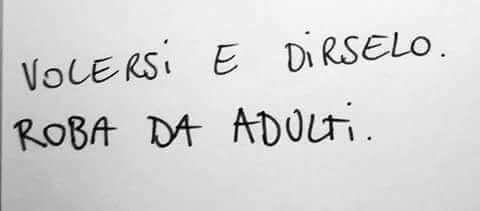 VOLERSI E DIRSELO.
ROBA DA ADULTI.